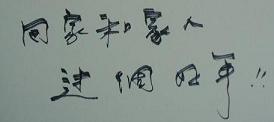 回家和家人
过個好年!!